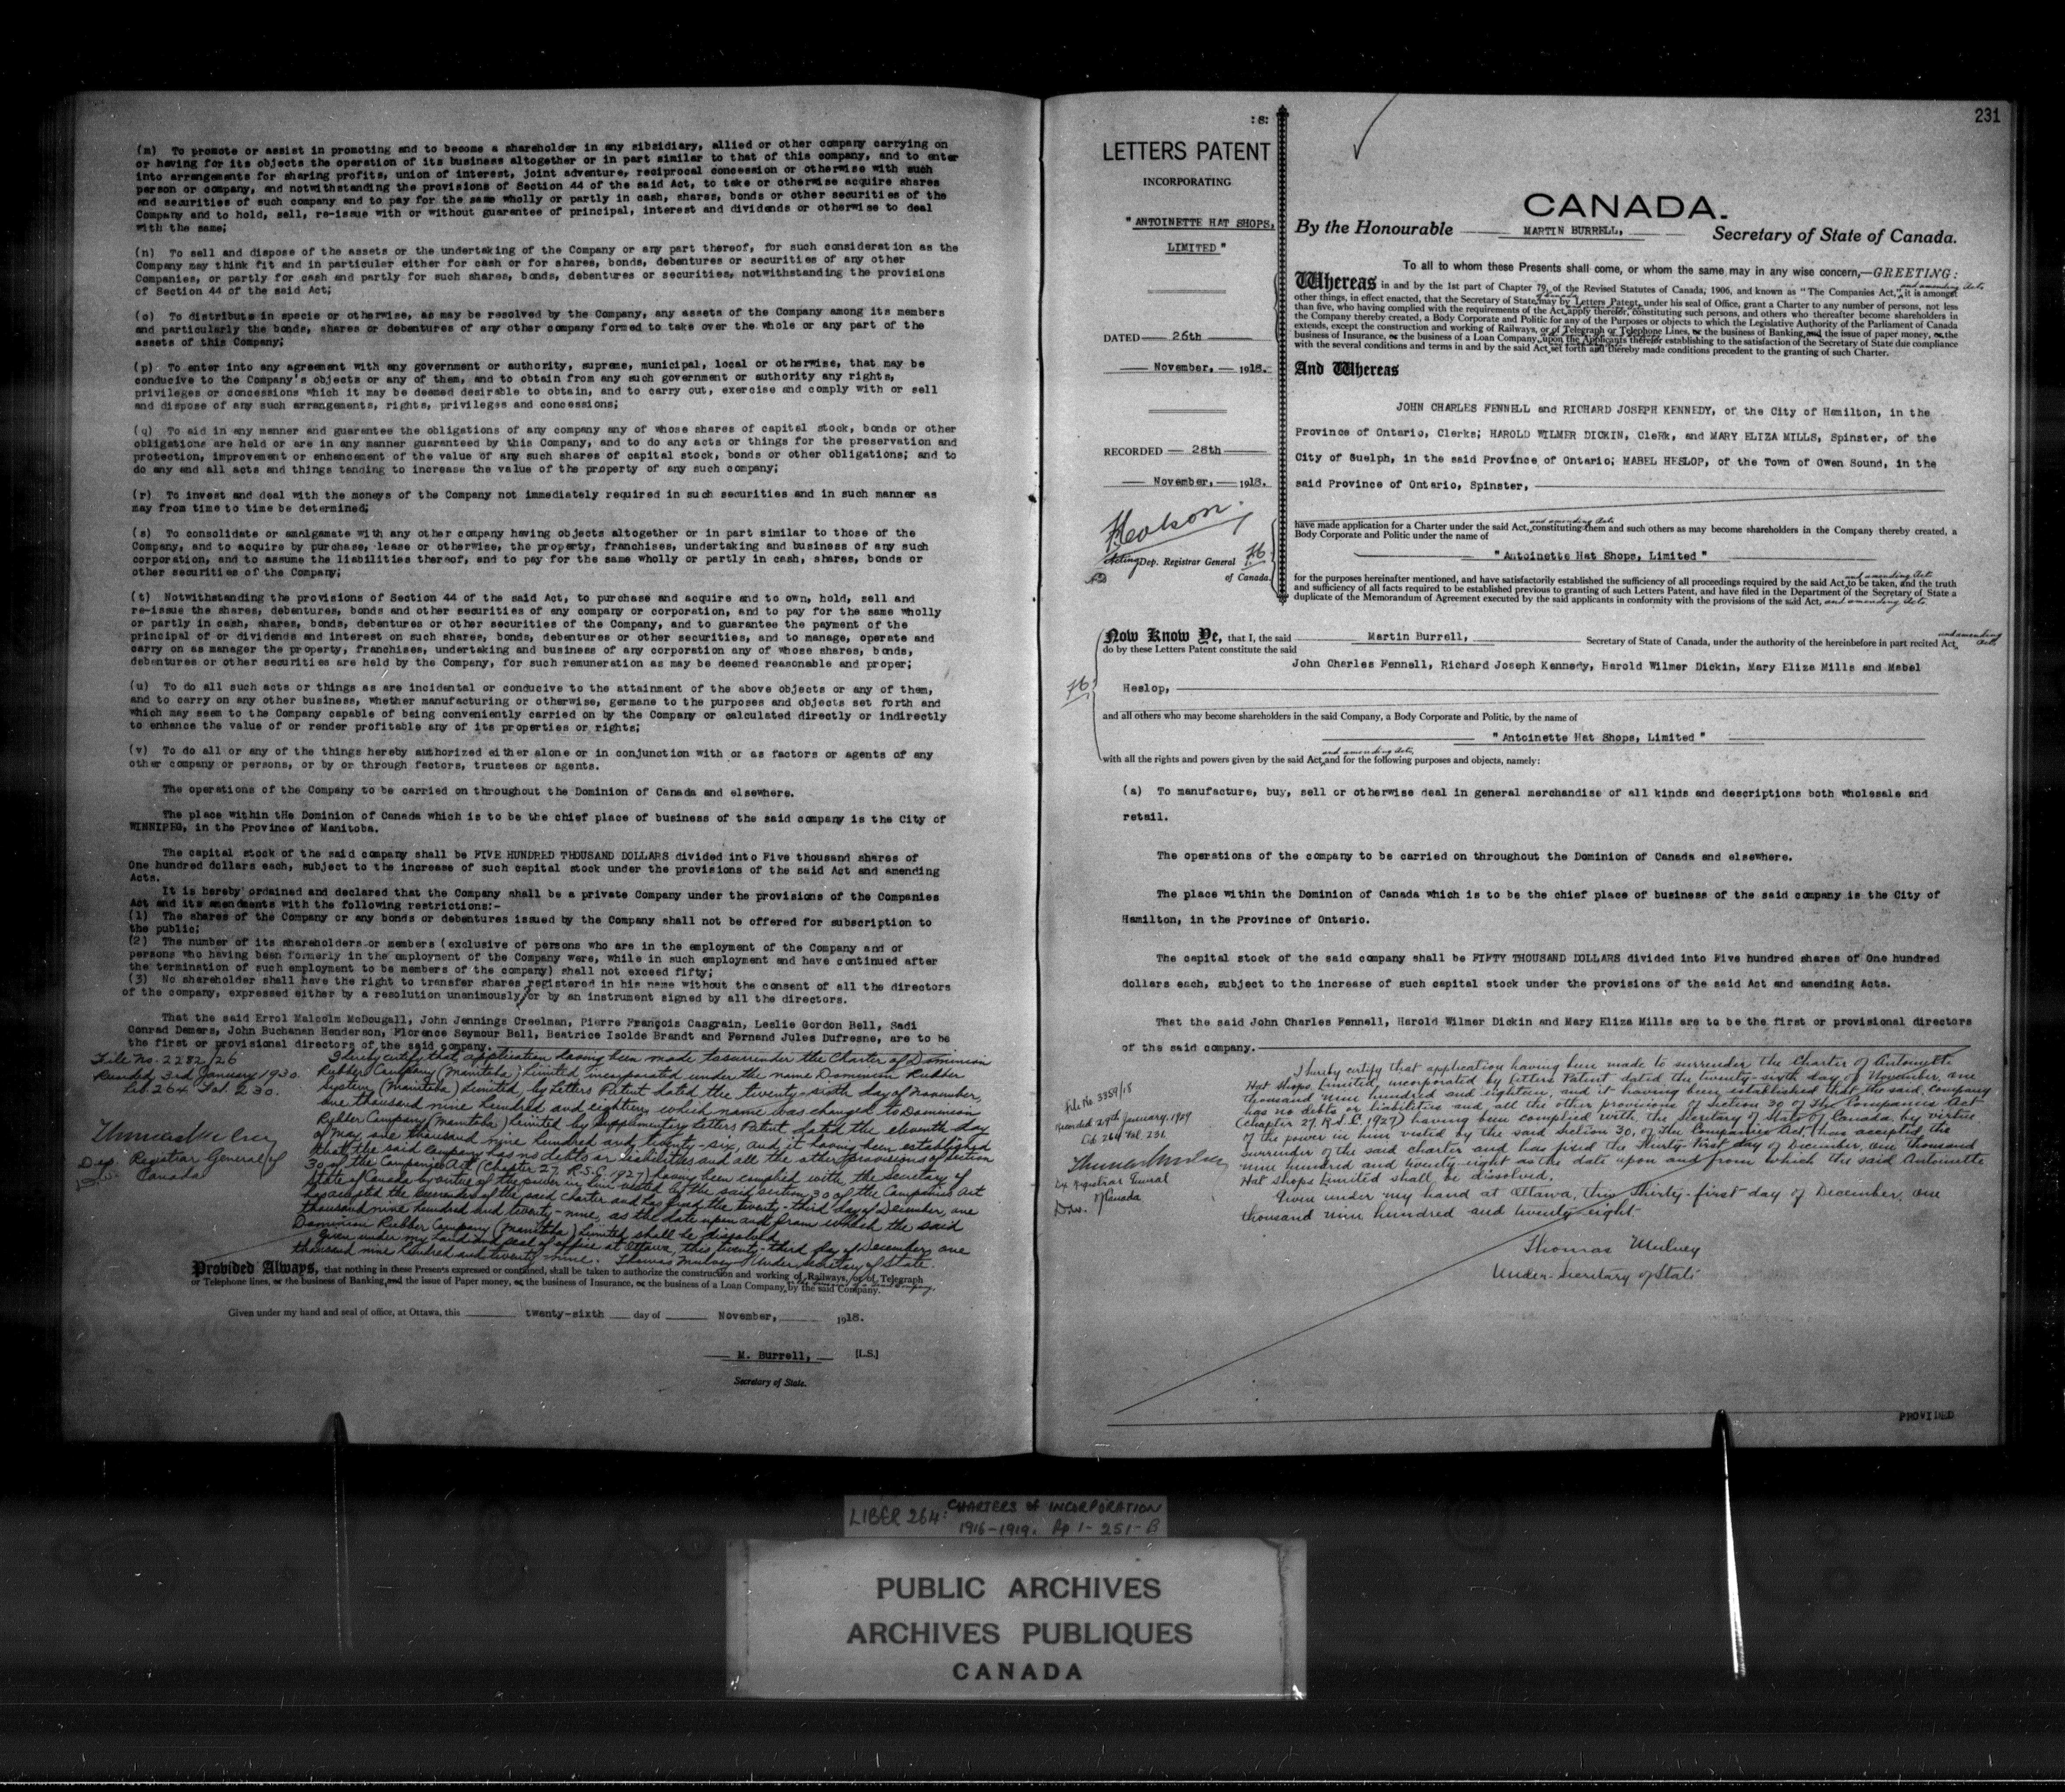 (m) To promote or assist in promoting and to become a shareholder in any sibsidiary, allied or other company carrying on
or having for its objects the operation of its business altogether or in part similar to that of this company, and to enter
into arrangements for sharing profits, union of interest, joint adventure, reciprocal concession or otherwise with such
person or company, and notwithstanding the provisions of Section 44 of the said Act, to take or otherwise acquire shares
and securities of such company and to pay for the same wholly or partly in cash, shares, bonds or other securities of the
Company and to hold, sell, re-issue with or without guarantee of principal, interest and dividends or otherwise to deal
with the same;
(n) To sell and dispose of the assets or the undertaking of the Company or any part thereof, for such consideration as the
Company may think fit and in particular either for cash or for shares, bonds, debentures or securities of any other
Companies, or partly for cash and partly for such shares, bonds, debentures or securities, notwithstanding the provisions
of Section 44 of the said Act;
(o) To distribute in specie or otherwise, as may be resolved by the Company, any assets of the Company among its members
and particularly the bonds, shares or debentures of any other company formed to take over the whole or any part of the
assets of this Company;
(p) To enter into any agreement with any government or authority, supreme, municipal, local or otherwise, that may be
conducive to the Company's objects or any of them, and to obtain from any such government or authority any rights,
privileges or concessions which it may be deemed desirable to obtain, and to carry out, exercise and comply with or sell
and dispose of any such arrangements, rights, privileges and concessions;
(q) To aid in any manner and guarantee the obligations of any company any of whose shares of capital stock, bonds or other
obligations are held or are in any manner guaranteed by this Company, and to do any acts or things for the preservation and
protection, improvement or enhancement of the value of any such shares of capital stock, bonds or other obligations; and to
do any and all acts and things tending to increase the value of the property of any such company;
(r) To invest and deal with the moneys of the Company not immediately required in such securities and in such manner as
may from time to time be determined;
(s) To consolidate or amalgamate with any other company having objects altogether or in part similar to those of the
Company, and to acquire by purchase, lease or otherwise, the property, franchises, undertaking and business of any such
corporation, and to assume the liabilities thereof, and to pay for the same wholly or partly in cash, shares, bonds or
other securities of the Company;
(t) Notwithstanding the provisions of Section 44 of the said Act, to purchase and acquire and to own, hold, sell and
re-issue the shares, debentures, bonds and other securities of any company or corporation, and to pay for the same wholly
or partly in cash, shares, bonds, debentures or other securities of the Company, and to guarantee the payment of the
principal of or dividends and interest on such shares, bonds, debentures or other securities, and to manage, operate and
carry on as manager the property, franchises, undertaking and business of any corporation any of whose shares, bonds,
debentures or other securities are held by the Company, for such remuneration as may be deemed reasonable and proper;
(u) To do all such acts or things as are incidental or conducive to the attainment of the above objects or any of them,
and to carry on any other business, whether manufacturing or otherwise, germane to the purposes and objects set forth and
which may seem to the Company capable of being conveniently carried on by the Company or calculated directly or indirectly
to enhance the value of or render profitable any of its properties or rights;
(v) To do all or any of the things hereby authorized either alone or in conjunction with or as factors or agents of any
other company or persons, or by or through factors, trustees or agents.
The operations of the Company to be carried on throughout the Dominion of Canada and elsewhere.
The place within tHe Dominion of Canada which is to be the chief place of business of the said company is the City of
WINNIPEG, in the Province of Manitoba.
The capital stock of the said company shall be FIVE HUNDRED THOUSAND DOLLARS divided into Five thousand shares of
One hundred dollars each, subject to the increase of such capital stock under the provisions of the said Act and amending
Acts.
It is hereby ordained and declared that the Company shall be a private Company under the provisions of the Companies
Act and its amendments with the following restrictions:-
(1) The shares of the Company or any bonds or debentures issued by the Company shall not be offered for subscription to
the public;
(2) The number of its shareholders or members (exclusive of persons who are in the employment of the Company and or
persons who having been formerly in the employment of the Company were, while in such employment and have continued after
the termination of such employment to be members of the company) shall not exceed fifty;
(3) No shareholder shall have the right to transfer shares registered in his name without the consent of all the directors
of the company, expressed either by a resolution unanimously or by an instrument signed by all the directors.
That the said Errol Malcolm McDougall, John Jennings Creelman, Pierre François Casgrain, Leslie Gordon Bell, Sadi
Conrad Demers, John Buchanan Henderson, Florence Seymour Bell, Beatrice Isolde Brandt and Fernand Jules Dufresne, are to be
the first or provisional directors of the said company.
File No. 2282/26
Recorded 3rd January 1930.
Lib. 264 Fol. 230.
Thomas Mulvey
Dep. Registrar General of
Canada
I hereby certify that application having been made to surrender the Charter of Dominion
Rubber Company (Manitoba) Limited, incorporated under the name Dominion Rubber
System (Manitoba) Limited, by Letters Patent dated the twenty-sixth day of November,
one thousand nine hundred and eighteen, which name was changed to Dominion
Rubber Company (Manitoba) Limited by Supplementary Letters Patent dated the eleventh day
of May, one thousand nine hundred and twenty-six, and it having been established
that the said Company has no debts or liabilities and all the other provisions of section
30 of the Companies Act (Chapter 27, R.S.C. 1927) having been complied with, the Secretary of
State of Canada by virtue of the power in him vested by the said section 30 of the Companies Act
has accepted the surrender of the said charter and has fixed the twenty-third day of December, one
thousand nine hundred and twenty-nine, as the date upon and from which the said
Dominion Rubber Company (Manitoba) Limited shall be dissolved
Given under my hand and seal of office at Ottawa, this twenty-third day of December, one
thousand nine hundred and twenty-nine. Thomas Mulvey Under Secretary of State.
Provided Always, that nothing in these Presents expressed or contained, shall be taken to authorize the construction and working of Railways, or of Telegraph
or Telephone lines, or the business of Banking and the issue of Paper money, or the business of Insurance, or the business of a Loan Company, by the said Company.
Given under my hand and seal of office, at Ottawa, this twenty-sixth day of November, 1918.
M. Burrell, [L.S.]
Secretary of State.
231
:8:
LETTERS PATENT
INCORPORATING
"ANTOINETTE HAT SHOPS,
LIMITED"
DATED 26th
November, 1918.
RECORDED 28th
November, 1918.
Acting Dep. Registrar General
of Canada.
CANADA.
By the Honourable MARTIN BURRELL, Secretary of State of Canada.
To all to whom these Presents shall come, or whom the same may in any wise concern,—GREETING:
Whereas in and by the 1st part of Chapter 79, of the Revised Statutes of Canada, 1906, and known as "The Companies Act," and amending Acts it is amongst
other things, in effect enacted, that the Secretary of State of Canada may by Letters Patent, under his seal of Office, grant a Charter to any number of persons, not less
than five, who having complied with the requirements of the Act, apply therefor, constituting such persons, and others who thereafter become shareholders in
the Company thereby created, a Body Corporate and Politic for any of the Purposes or objects to which the Legislative Authority of the Parliament of Canada
extends, except the construction and working of Railways, or of Telegraph or Telephone Lines, or the business of Banking and the issue of paper money, or the
business of Insurance, or the business of a Loan Company, upon the Applicants therefor establishing to the satisfaction of the Secretary of State due compliance
with the several conditions and terms in and by the said Act set forth and thereby made conditions precedent to the granting of such Charter.
And Whereas
JOHN CHARLES FENNELL and RICHARD JOSEPH KENNEDY, of the City of Hamilton, in the
Province of Ontario, Clerks; HAROLD WILMER DICKIN, CleRk, and MARY ELIZA MILLS, Spinster, of the
City of Guelph, in the said Province of Ontario; MABEL HESLOP, of the Town of Owen Sound, in the
said Province of Ontario, Spinster,
have made application for a Charter under the said Act, and amending Acts constituting them and such others as may become shareholders in the Company thereby created, a
Body Corporate and Politic under the name of
"Antoinette Hat Shops, Limited"
for the purposes hereinafter mentioned, and have satisfactorily established the sufficiency of all proceedings required by the said Act and amending Acts to be taken, and the truth
and sufficiency of all facts required to be established previous to granting of such Letters Patent, and have filed in the Department of the Secretary of State a
duplicate of the Memorandum of Agreement executed by the said applicants in conformity with the provisions of the said Act, and amending Acts.
Now Know Ye, that I, the said Martin Burrell, Secretary of State of Canada, under the authority of the hereinbefore in part recited Act, and amending Acts
do by these Letters Patent constitute the said
John Charles Fennell, Richard Joseph Kennedy, Harold Wilmer Dickin, Mary Eliza Mills and Mabel
Heslop,
and all others who may become shareholders in the said Company, a Body Corporate and Politic, by the name of
"Antoinette Hat Shops, Limited"
with all the rights and powers given by the said Act, and amending Acts, and for the following purposes and objects, namely:
(a) To manufacture, buy, sell or otherwise deal in general merchandise of all kinds and descriptions both wholesale and
retail.
The operations of the company to be carried on throughout the Dominion of Canada and elsewhere.
The place within the Dominion of Canada which is to be the chief place of business of the said company is the City of
Hamilton, in the Province of Ontario.
The capital stock of the said company shall be FIFTY THOUSAND DOLLARS divided into Five hundred shares of One hundred
dollars each, subject to the increase of such capital stock under the provisions of the said Act and amending Acts.
That the said John Charles Fennell, Harold Wilmer Dickin and Mary Eliza Mills are to be the first or provisional directors
of the said company.
File No. 3359/18
Recorded 29th January, 1929
Lib. 264 Fol. 231.
Thomas Mulvey
Dep. Registrar General
of Canada
I hereby certify that application having been made to surrender the Charter of Antoinette
Hat Shops, Limited, incorporated by Letters Patent dated the twenty-sixth day of November, one
thousand nine hundred and eighteen, and it having been established that the said company
has no debts or liabilities and all the other provisions of section 30 of The Companies Act
(Chapter 27, R.S.C. 1927) having been complied with, the Secretary of State of Canada, by virtue
of the power in him vested by the said section 30, of The Companies Act, has accepted the
surrender of the said charter and has fixed the Thirty-First day of December, one thousand
nine hundred and twenty-eight as the date upon and from which the said Antoinette
Hat Shops Limited shall be dissolved.
Given under my hand at Ottawa, this Thirty-first day of December, one
thousand nine hundred and twenty eight
Thomas Mulvey
Under-Secretary of State
PROVIDED
LIBER 264: CHARTERS of INCORPORATION
1916-1919. Pp 1-251-B
PUBLIC ARCHIVES
ARCHIVES PUBLIQUES
CANADA